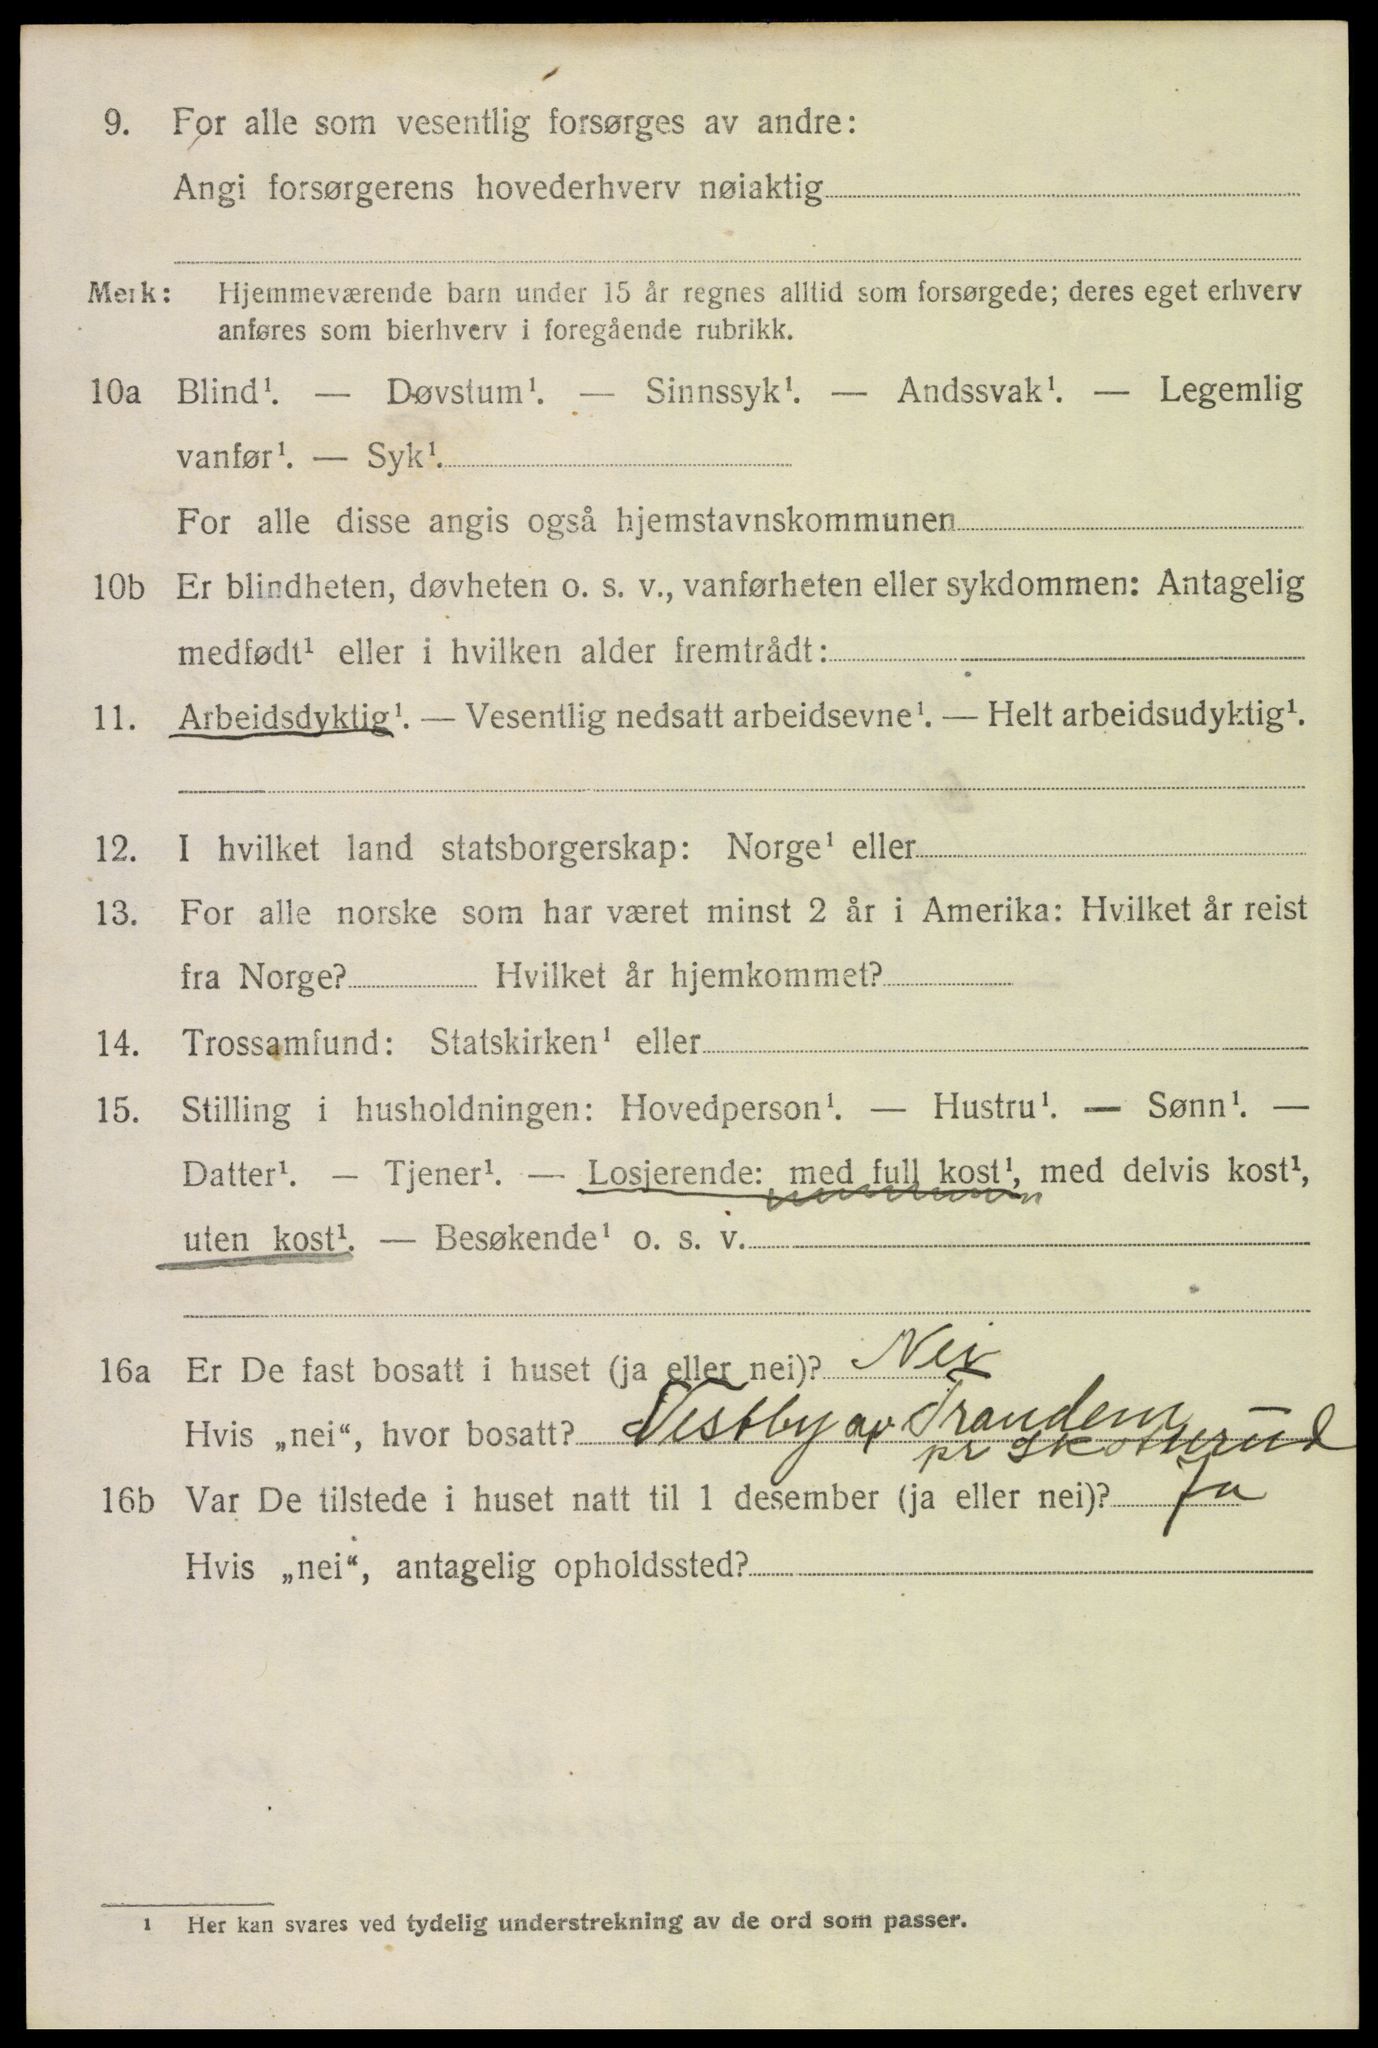 9. For alle som vesentlig forsørges av andre:
Angi forsørgerens hovederhverv nøiaktig
Merk: Hjemmeværende barn under 15 år regnes alltid som forsørgede; deres eget erhverv
anføres som bierhverv i foregående rubrikk.
10a Blind¹. — Døvstum¹. — Sinnssyk¹. — Andssvak¹. — Legemlig
vanfør¹. — Syk¹.
For alle disse angis også hjemstavnskommunen
10b Er blindheten, døvheten o. s. v., vanførheten eller sykdommen: Antagelig
medfødt¹ eller i hvilken alder fremtrådt:
11. Arbeidsdyktig¹. — Vesentlig nedsatt arbeidsevne¹. — Helt arbeidsudyktig¹.
12. I hvilket land statsborgerskap: Norge¹ eller
13. For alle norske som har været minst 2 år i Amerika: Hvilket år reist
fra Norge? Hvilket år hjemkommet?
14. Trossamfund: Statskirken¹ eller
15. Stilling i husholdningen: Hovedperson¹. — Hustru¹. — Sønn¹. —
Datter¹. — Tjener¹. — Losjerende: med full kost¹, med delvis kost¹,
uten kost¹. — Besøkende¹ o. s. v.
16a Er De fast bosatt i huset (ja eller nei)? Nei
Hvis „nei“, hvor bosatt? Vestby av Trandem
pr Skotterud
16b Var De tilstede i huset natt til 1 desember (ja eller nei)? Ja
Hvis „nei“, antagelig opholdssted?
¹ Her kan svares ved tydelig understrekning av de ord som passer.